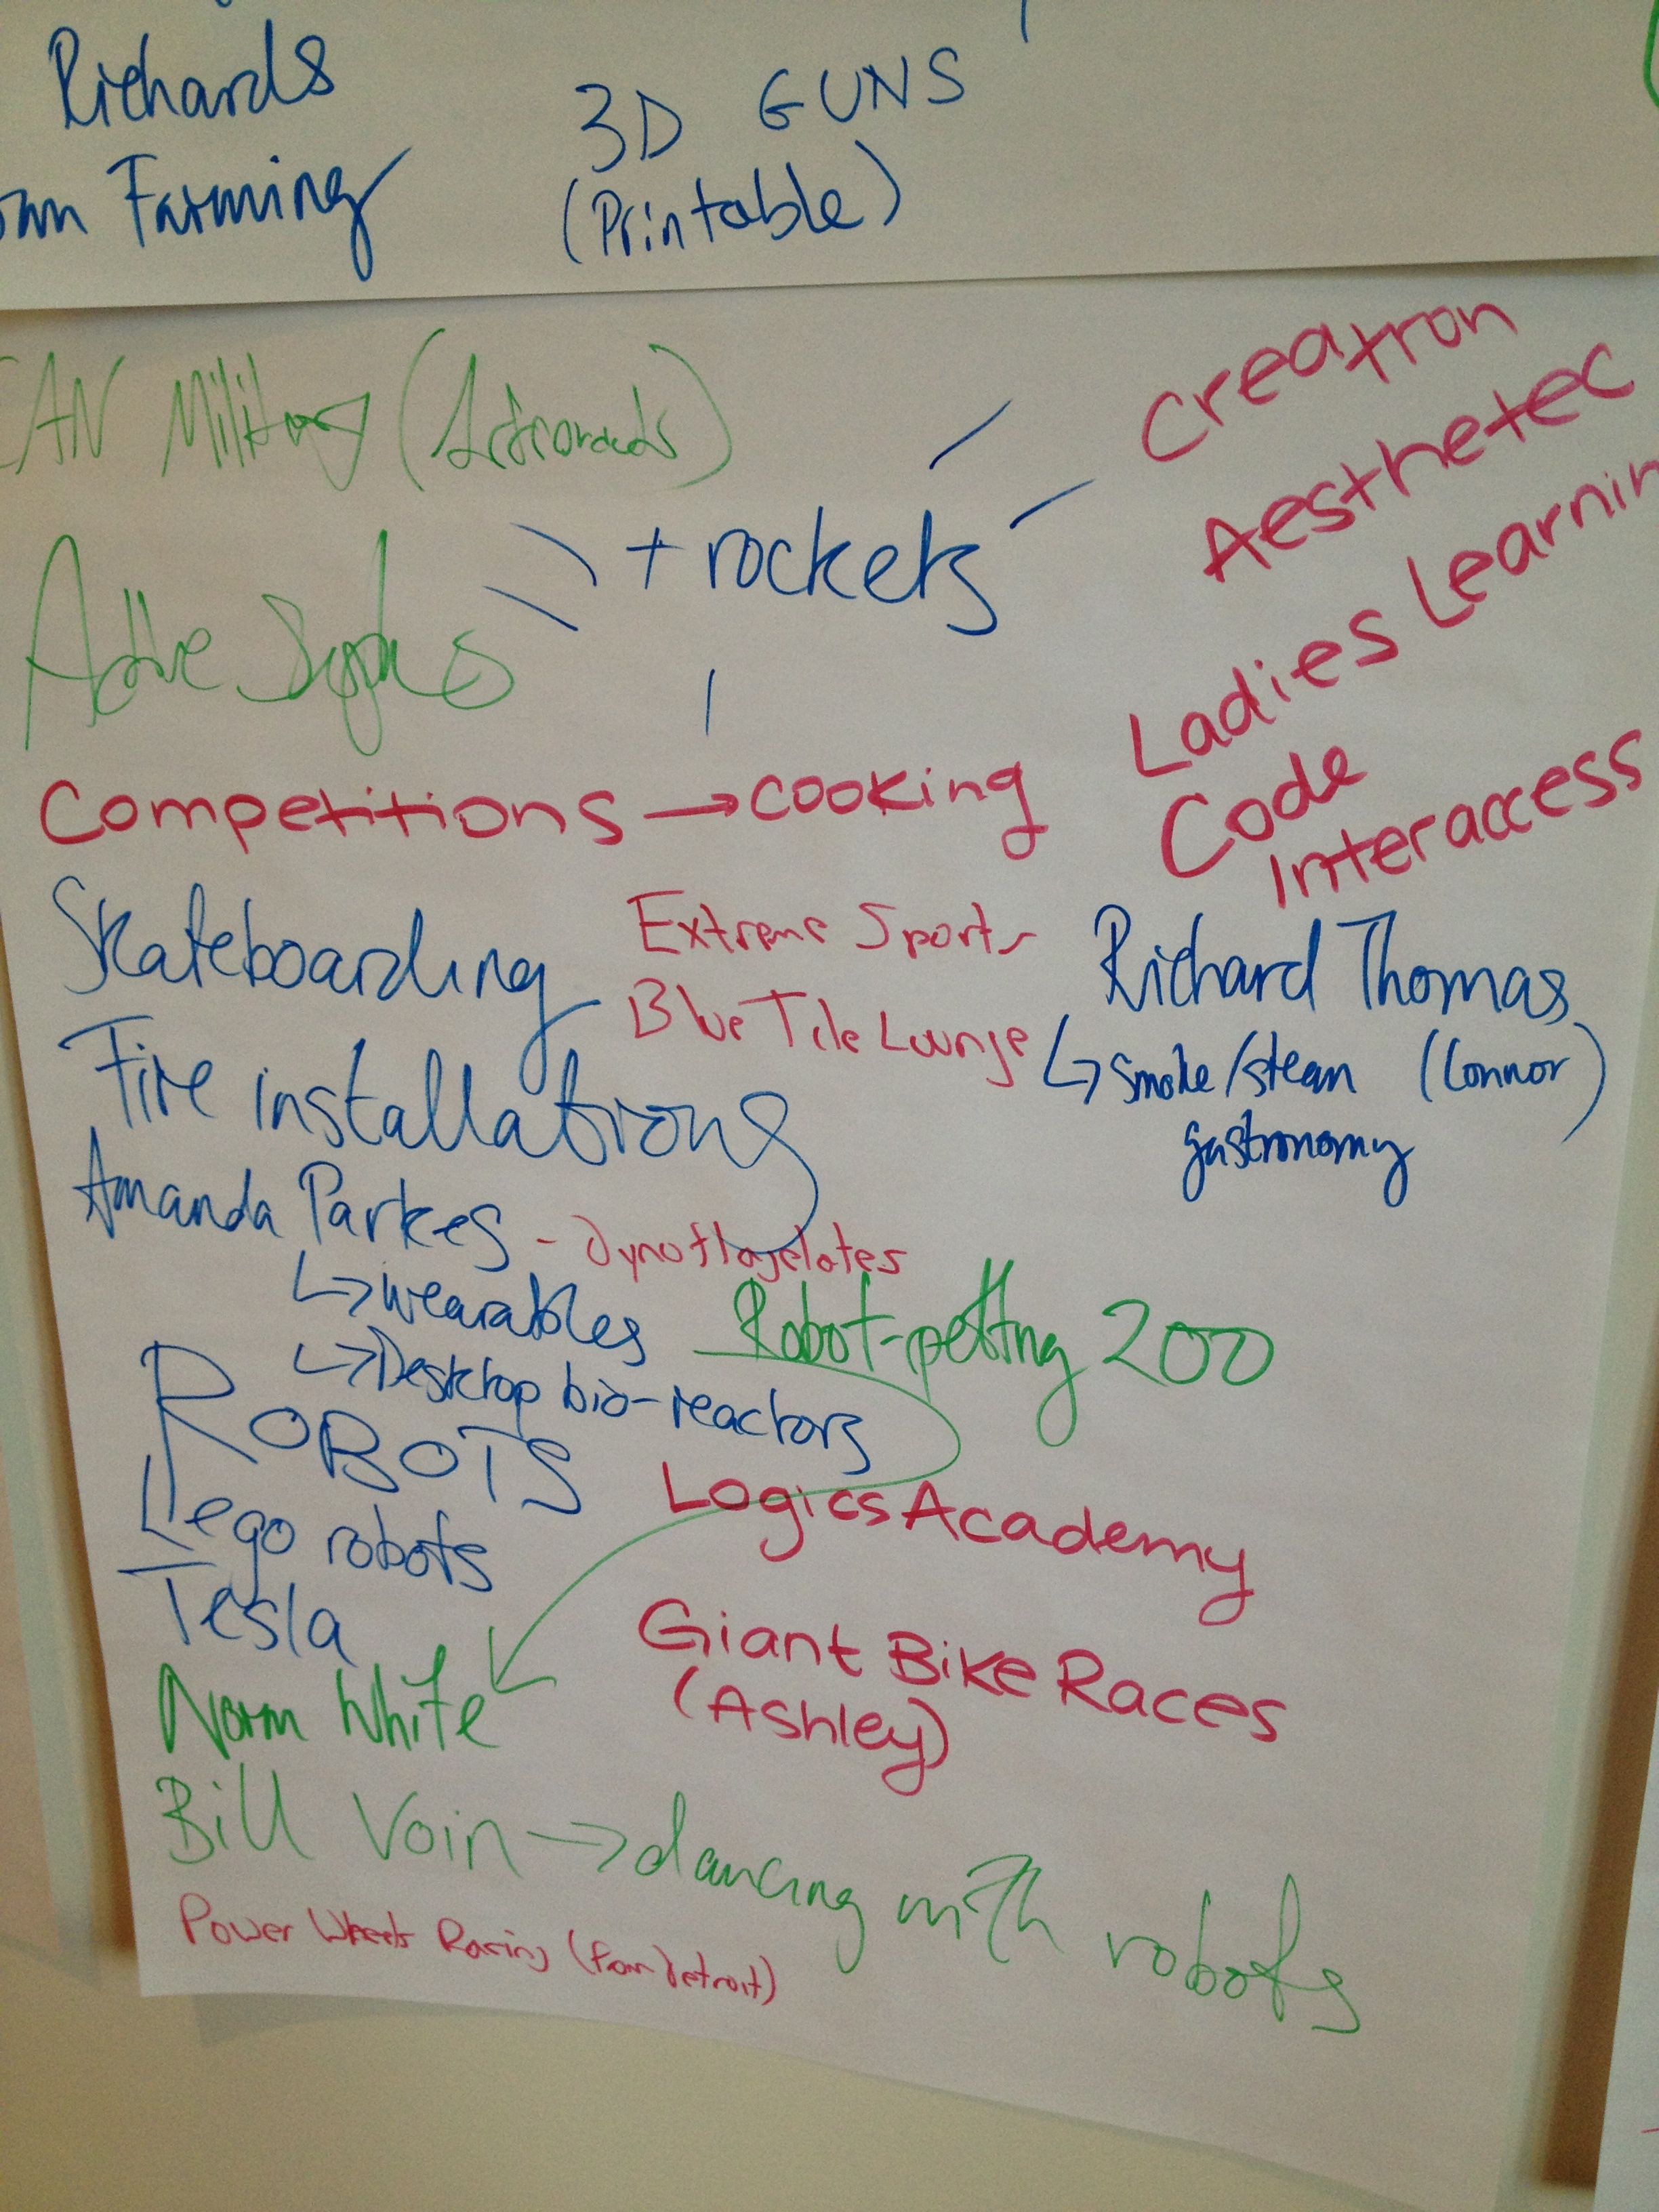 Richards
Farming
3D GUNS
(Printable)
CAN Military
+ rockets
Creatron
Aesthetec
Ladies Learnin
Code
Interaccess
Competitions → cooking
Skateboarding
Extreme Sports
Blue Tile Lounge
Richard Thomas
↳ smoke/steam (Connor)
gastronomy
Fire installations
Amanda Parkes - Dynoflagelates
↳ wearables
↳ Desktop bio-reactors
Robot-petting 200
ROBOTS
Lego robots
Tesla
Logics Academy
Giant Bike Races
(Ashley)
Norm White
Bill Voin → dancing with robots
Power Wheels Racing (from Detroit)